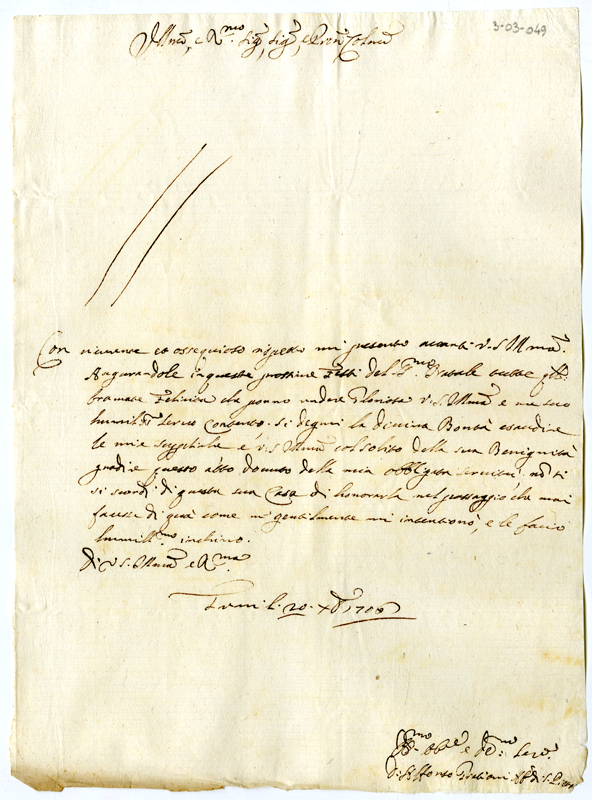 3-03-049
Illmo, e Rmo Sig, Sig, e Pron Colmo
Con riverense et ossequioso rispetto mi presento avanti V.S Illma.
Augurandole in queste prossime Feste del S.mo Natale tutte q
bramate felicità che ponno rendere Gloriosa V.S Illma e me suo
humiliss servo contento. Si degni la divina Bontà esaudire
le mie suppliche e V.S Illma col solito della sua Benignità
gradire questo atto dovuto della mia obbligata servitù non
si scordi di questa sua Casa di honorarla nel passaggio che mai
facesse di quà come gentilmente mi intentionò, e le faccio
humillmo inchino.
Di V.S. Illma e Rma
li 20 Xbre 1706
mo e mo
D.